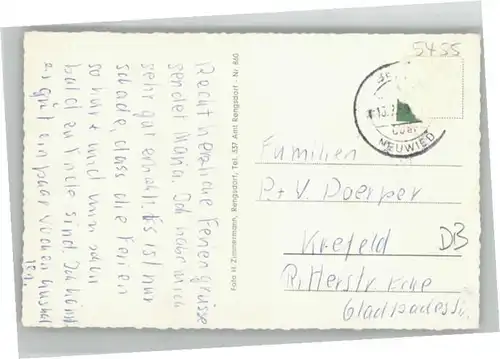 5455
Recht herzliche Feriengrüsse
sendet Maria. Ich habe mich
sehr gut erholt. Es ist nur
schade, dass die Ferien
so kurz und nun schon
bald zu Ende sind. Ich könnt
ein paar Wochen aushal
ten.
Foto H. Zimmermann, Rengsdorf, Tel. 157 Amt Rengsdorf - Nr. 860
NEUWIED
Familien
P. + V. Doerper
Krefeld
DB
Ecke
Gladbacherstr.